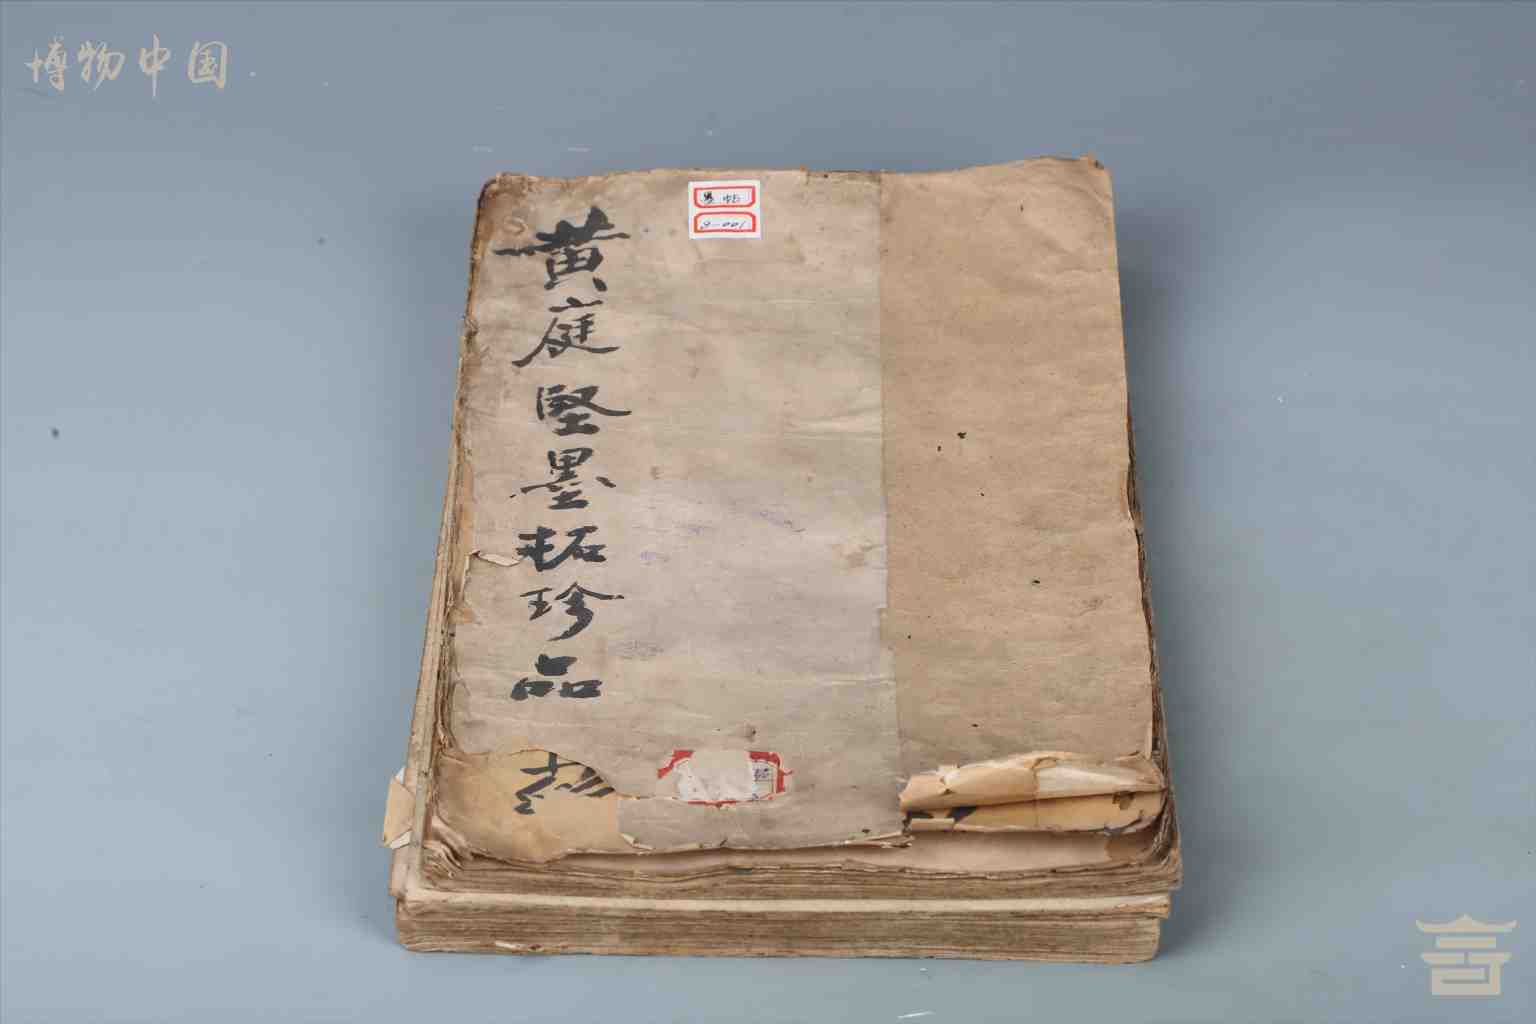 博物中国
黄庭堅墨拓珍品
墨帖
9-001